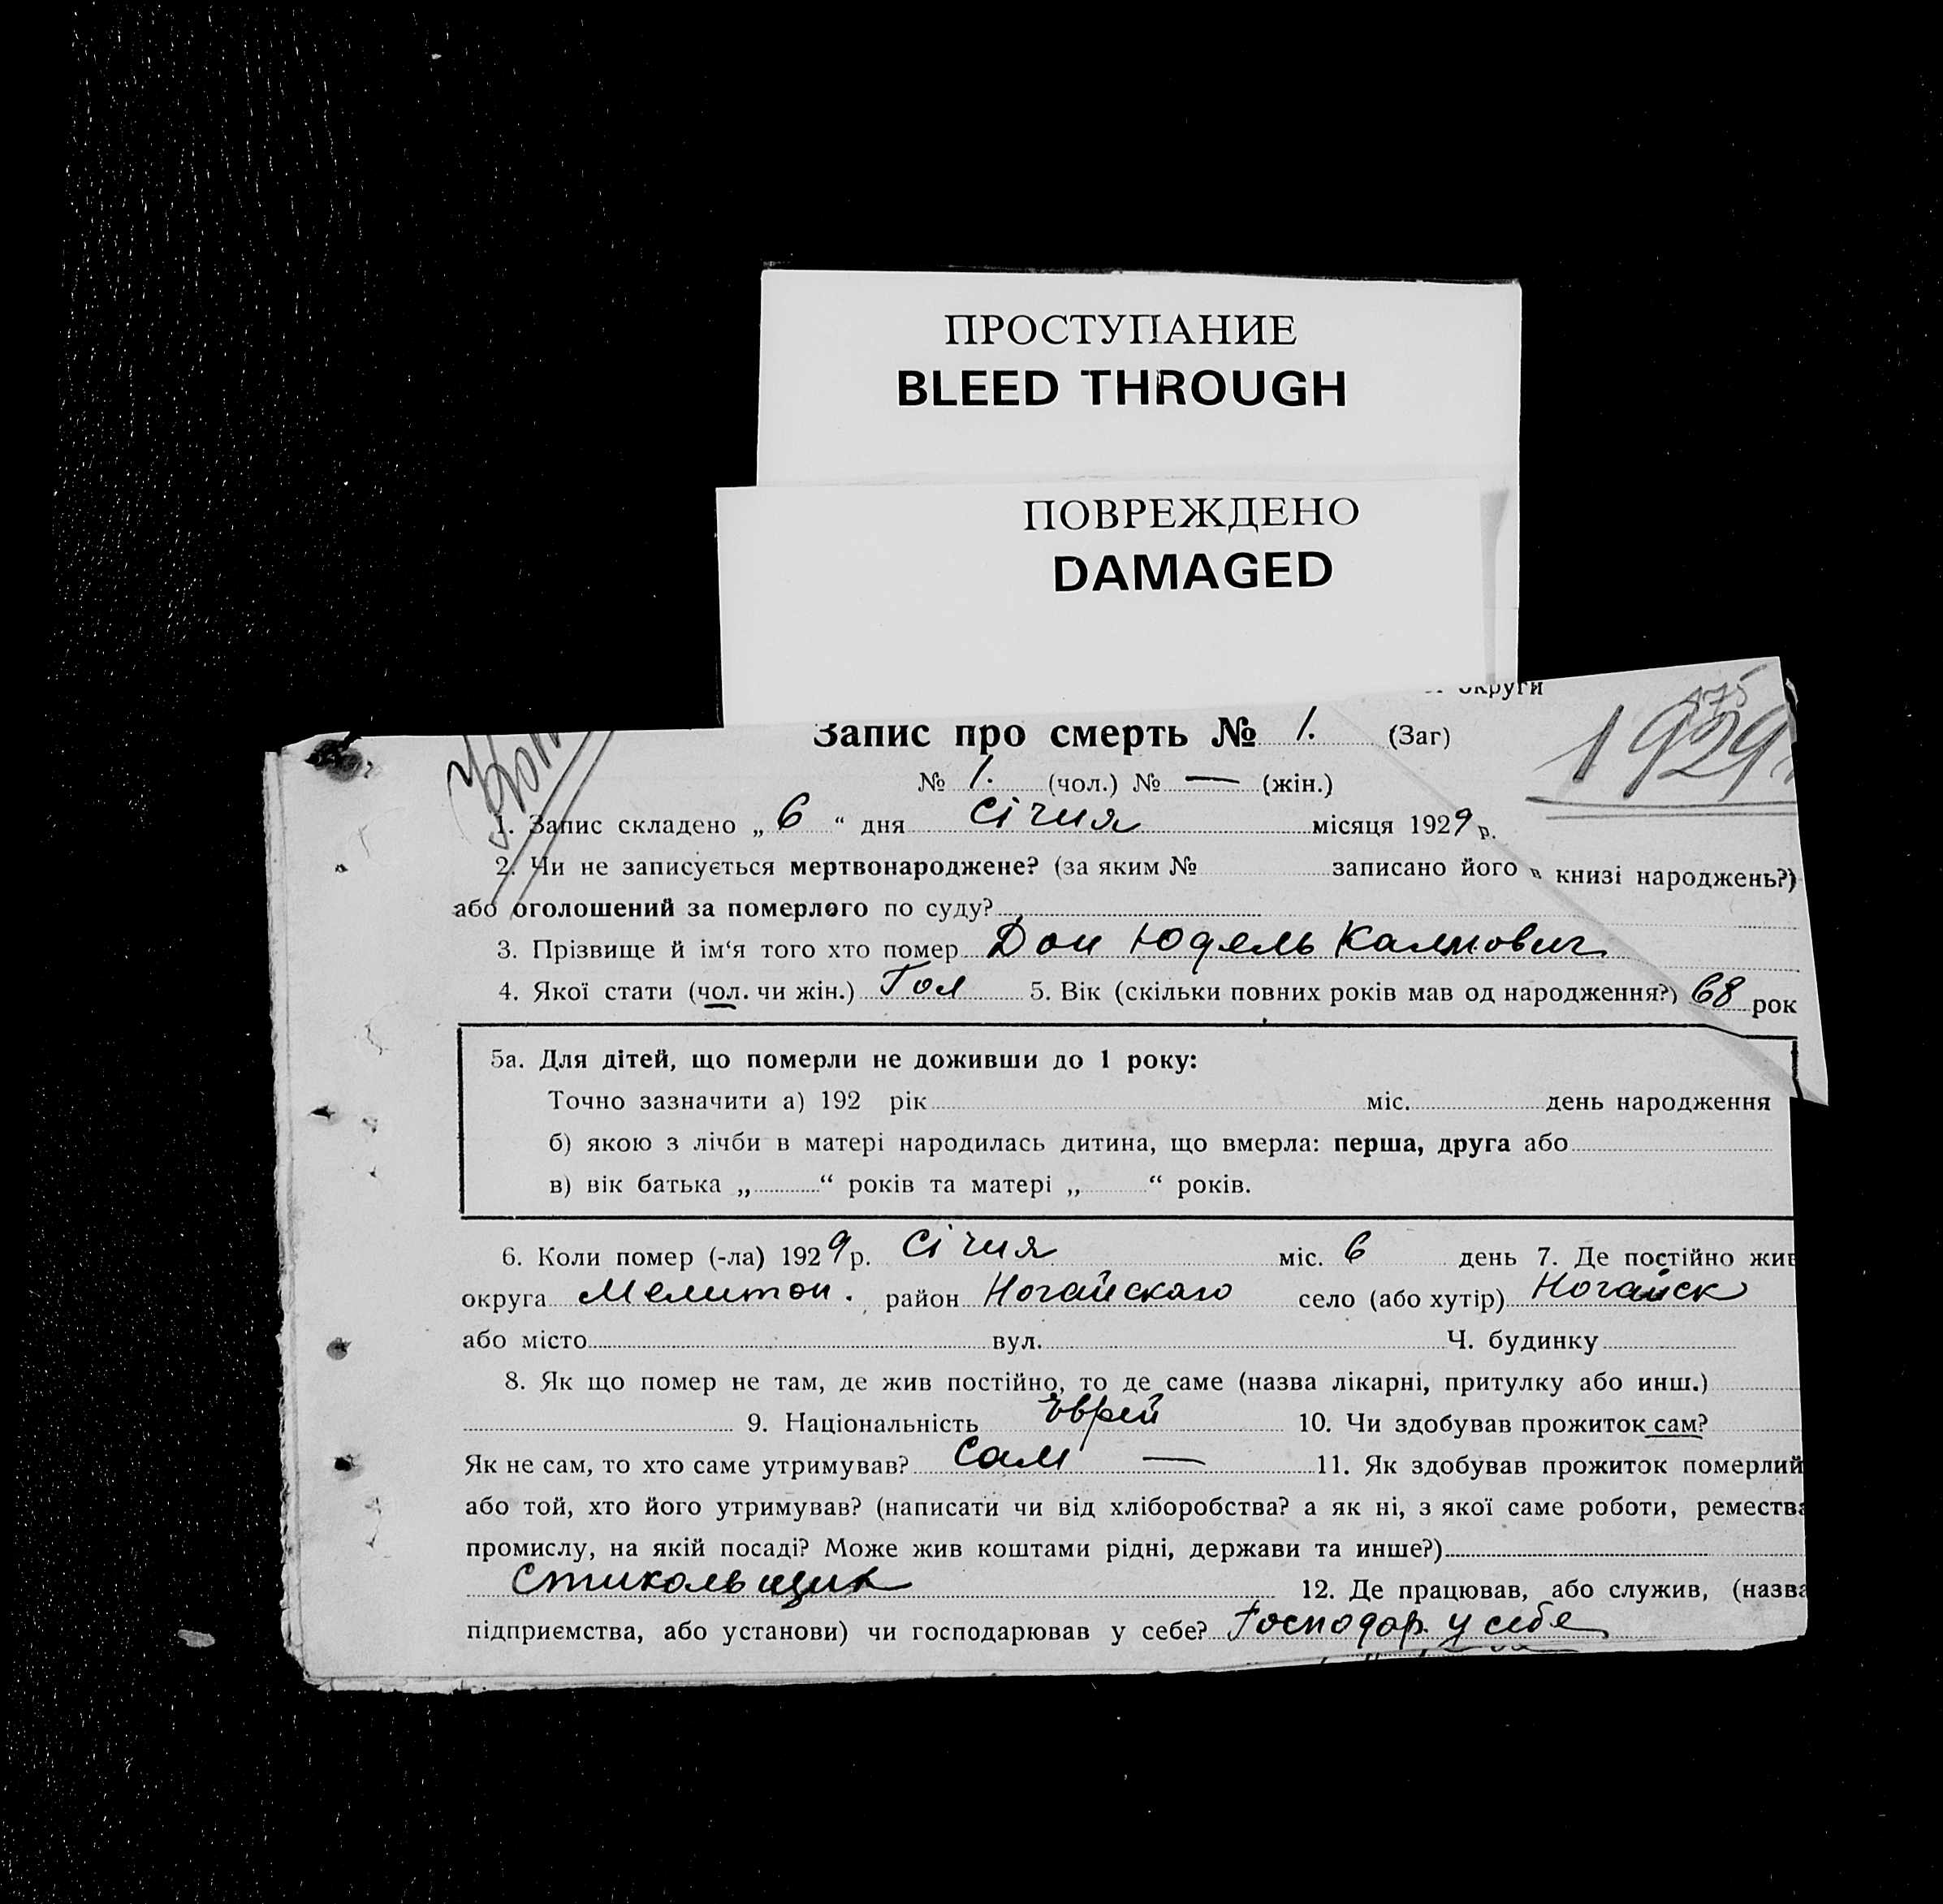 ПРОСТУПАНИЕ
BLEED THROUGH
ПОВРЕЖДЕНО
DAMAGED
округи
175
1929
Запис про смерть № 1. (Заг)
№ 1. (чол.) № — (жін.)
1. Запис складено „ 6 “ дня січня місяця 1929 р.
2. Чи не записується мертвонароджене? (за яким № записано його в книзі народжень?)
або оголошений за померлого по суду?
3. Прізвище й ім‘я того хто помер Дон Юдель Калмович
4. Якої стати (чол. чи жін.) Гол 5. Вік (скільки повних років мав од народження?) 68 рок
5а. Для дітей, що померли не доживши до 1 року:
Точно зазначити а) 192 рік міс. день народження
б) якою з лічби в матері народилась дитина, що вмерла: перша, друга або
в) вік батька „ “ років та матері „ “ років.
6. Коли помер (-ла) 1929 р. Січня міс. 6 день 7. Де постійно жив
округа Мелитоп. район Ногайскаго село (або хутір) Ногайск
або місто вул. Ч. будинку
8. Як що помер не там, де жив постійно, то де саме (назва лікарні, притулку або инш.)
9. Національність Еврей 10. Чи здобував прожиток сам?
Як не сам, то хто саме утримував? Сам — 11. Як здобував прожиток померлий
або той, хто його утримував? (написати чи від хліборобства? а як ні, з якої саме роботи, ремества
промислу, на якій посаді? Може жив коштами рідні, держави та инше?)
Стикольщик 12. Де працював, або служив, (назва
підприємства, або установи) чи господарював у себе? Господар. у себе